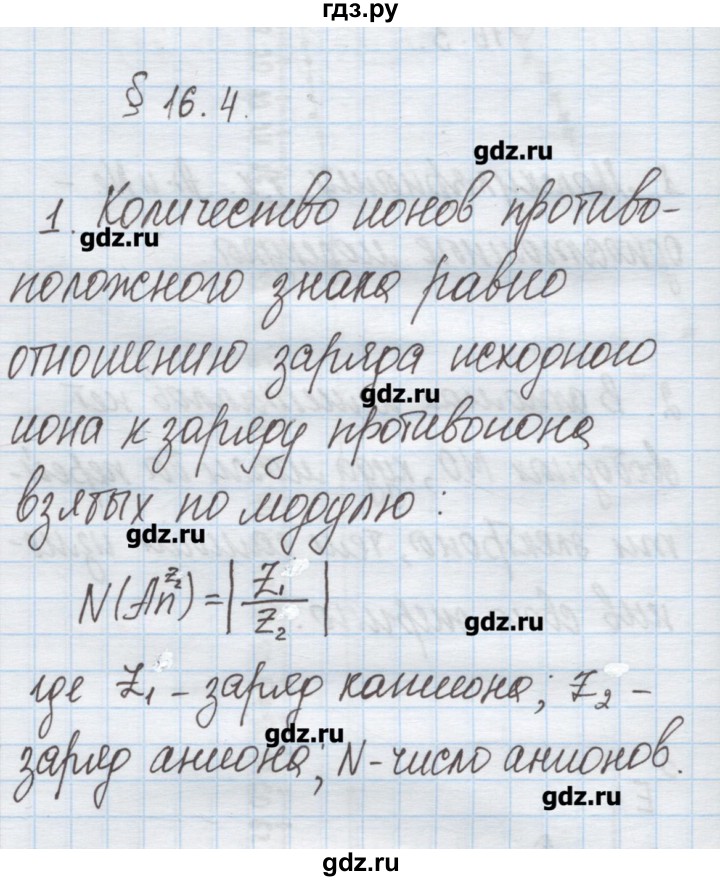 гдз.ру
§ 16.4.
gdz.ru
1. Количество ионов противо-
gdz.ru
положного знака равно
отношению заряда исходного
gdz.ru
иона к заряду противоиона
взятых по модулю:
gdz.ru
N(An^Z₂) = |Z₁/Z₂|
gdz.ru
где Z₁ - заряд катиона; Z₂ -
gdz.ru
заряд аниона; N - число анионов.
gdz.ru
gdz.ru